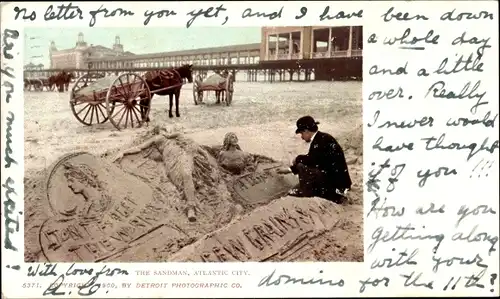 No letter from you yet, and I have been down
a whole day
and a little
over. Really
I never would
have thought
it of you!!!
How are you
getting along
with your
domino for the 11th?
Are you much excited?
With love from
DON'T FORGET
THE WORKER
THE SANDMAN, ATLANTIC CITY.
5371. COPYRIGHT, 1900, BY DETROIT PHOTOGRAPHIC CO.